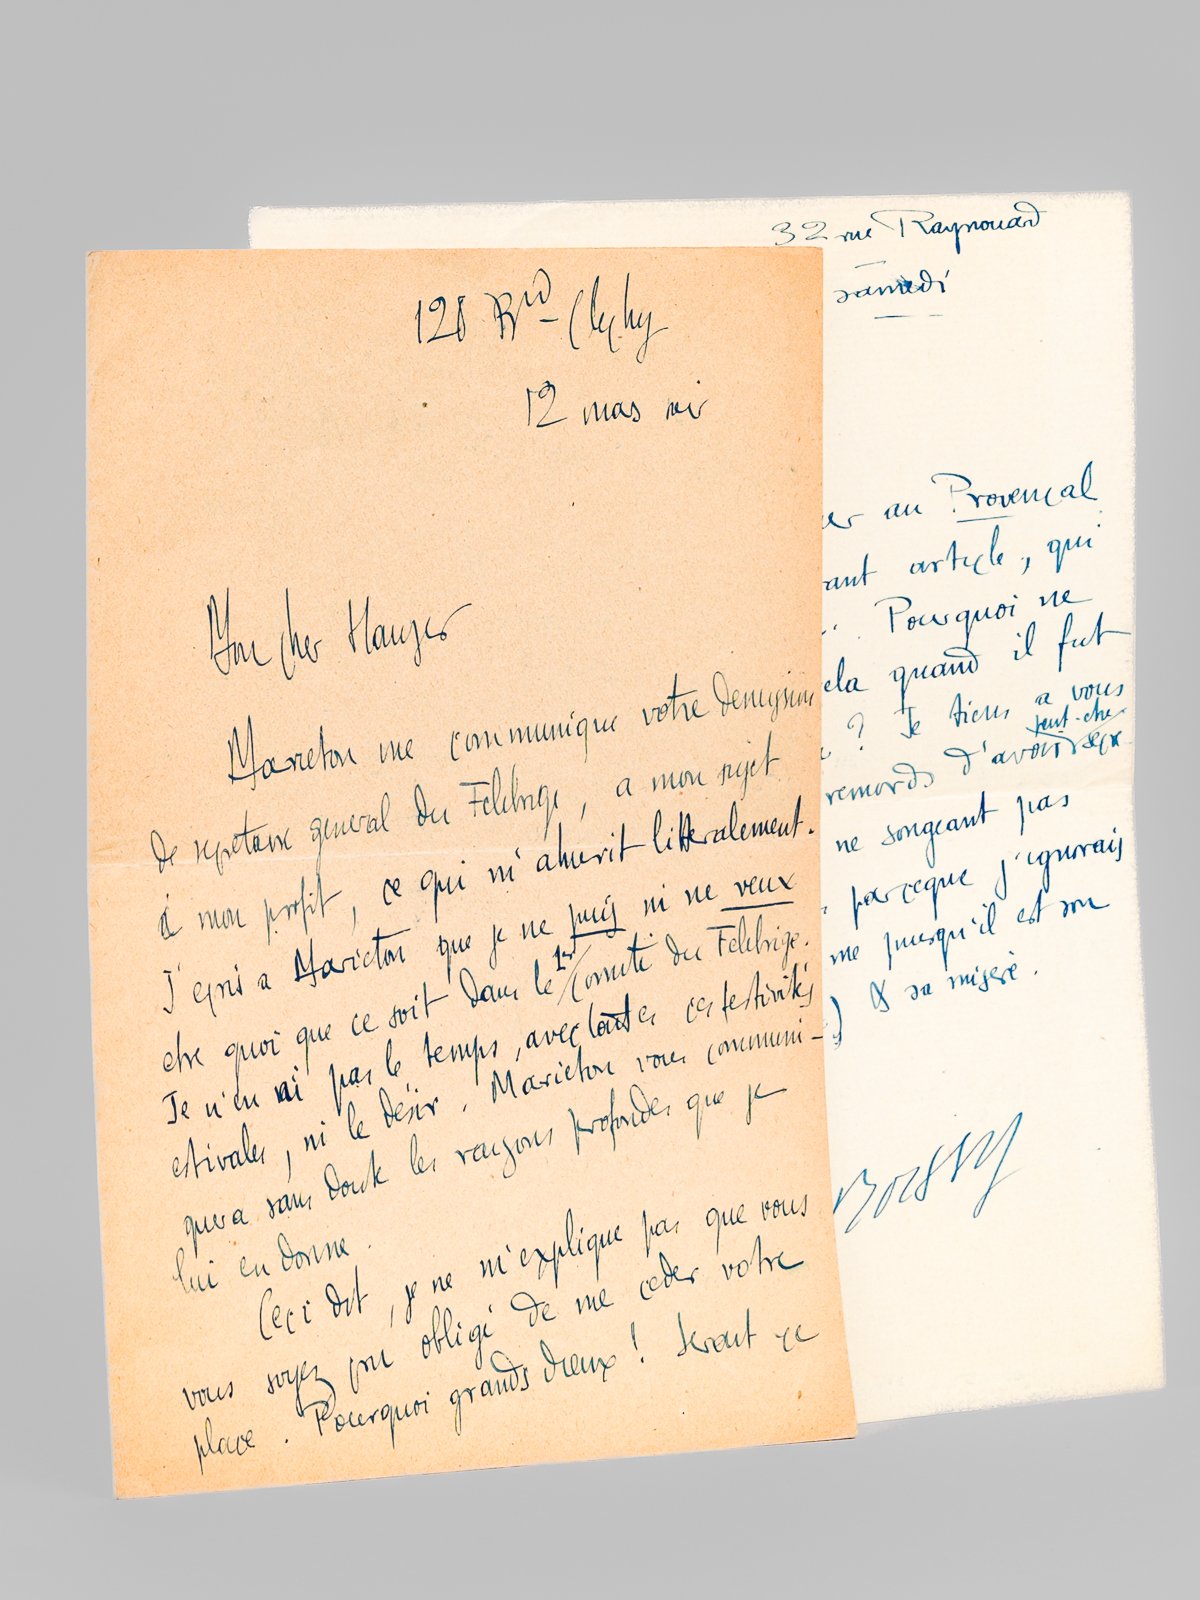 128 Bvd Clichy
12 mars
Mon cher Hauser
Marieton me communique votre demission
de secretaire general du Felibrige, a mon sujet
à mon profit, ce qui m'ahurit litteralement.
J'ecris a Marieton que je ne puis ni ne veux
etre quoi que ce soit dans le 1er Comité du Felibrige.
Je n'en ai pas le temps, avec toutes ces festivités
estivales, ni le désir. Marieton vous communi-
quera sans doute les raisons profondes que je
lui en donne.
Ceci dit, je ne m'explique pas que vous
vous soyez cru obligé de me ceder votre
place. Pourquoi grands dieux! Serait ce
32 rue Raynouard
samedi
er au Provençal
ant article, qui
Pourquoi ne
ela quand il fut
? Je tiens a vous
peut-etre
remords d'avoir
ne songeant pas
parceque j'ignorais
me puisqu'il est son
) & sa misere.
Boissy